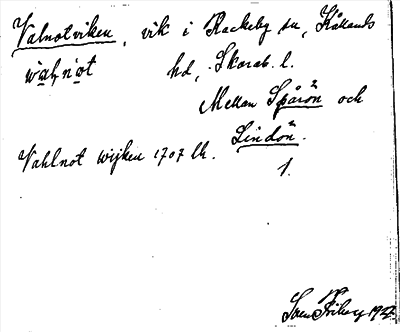 Valnotviken, vik i Rackeby sn, Kållands
wàḥnòt hd, Skarab. l.
Mellan Spårön och
Lindön.
Vahlnot wijken 1707 lh. 1.
Sven Friberg